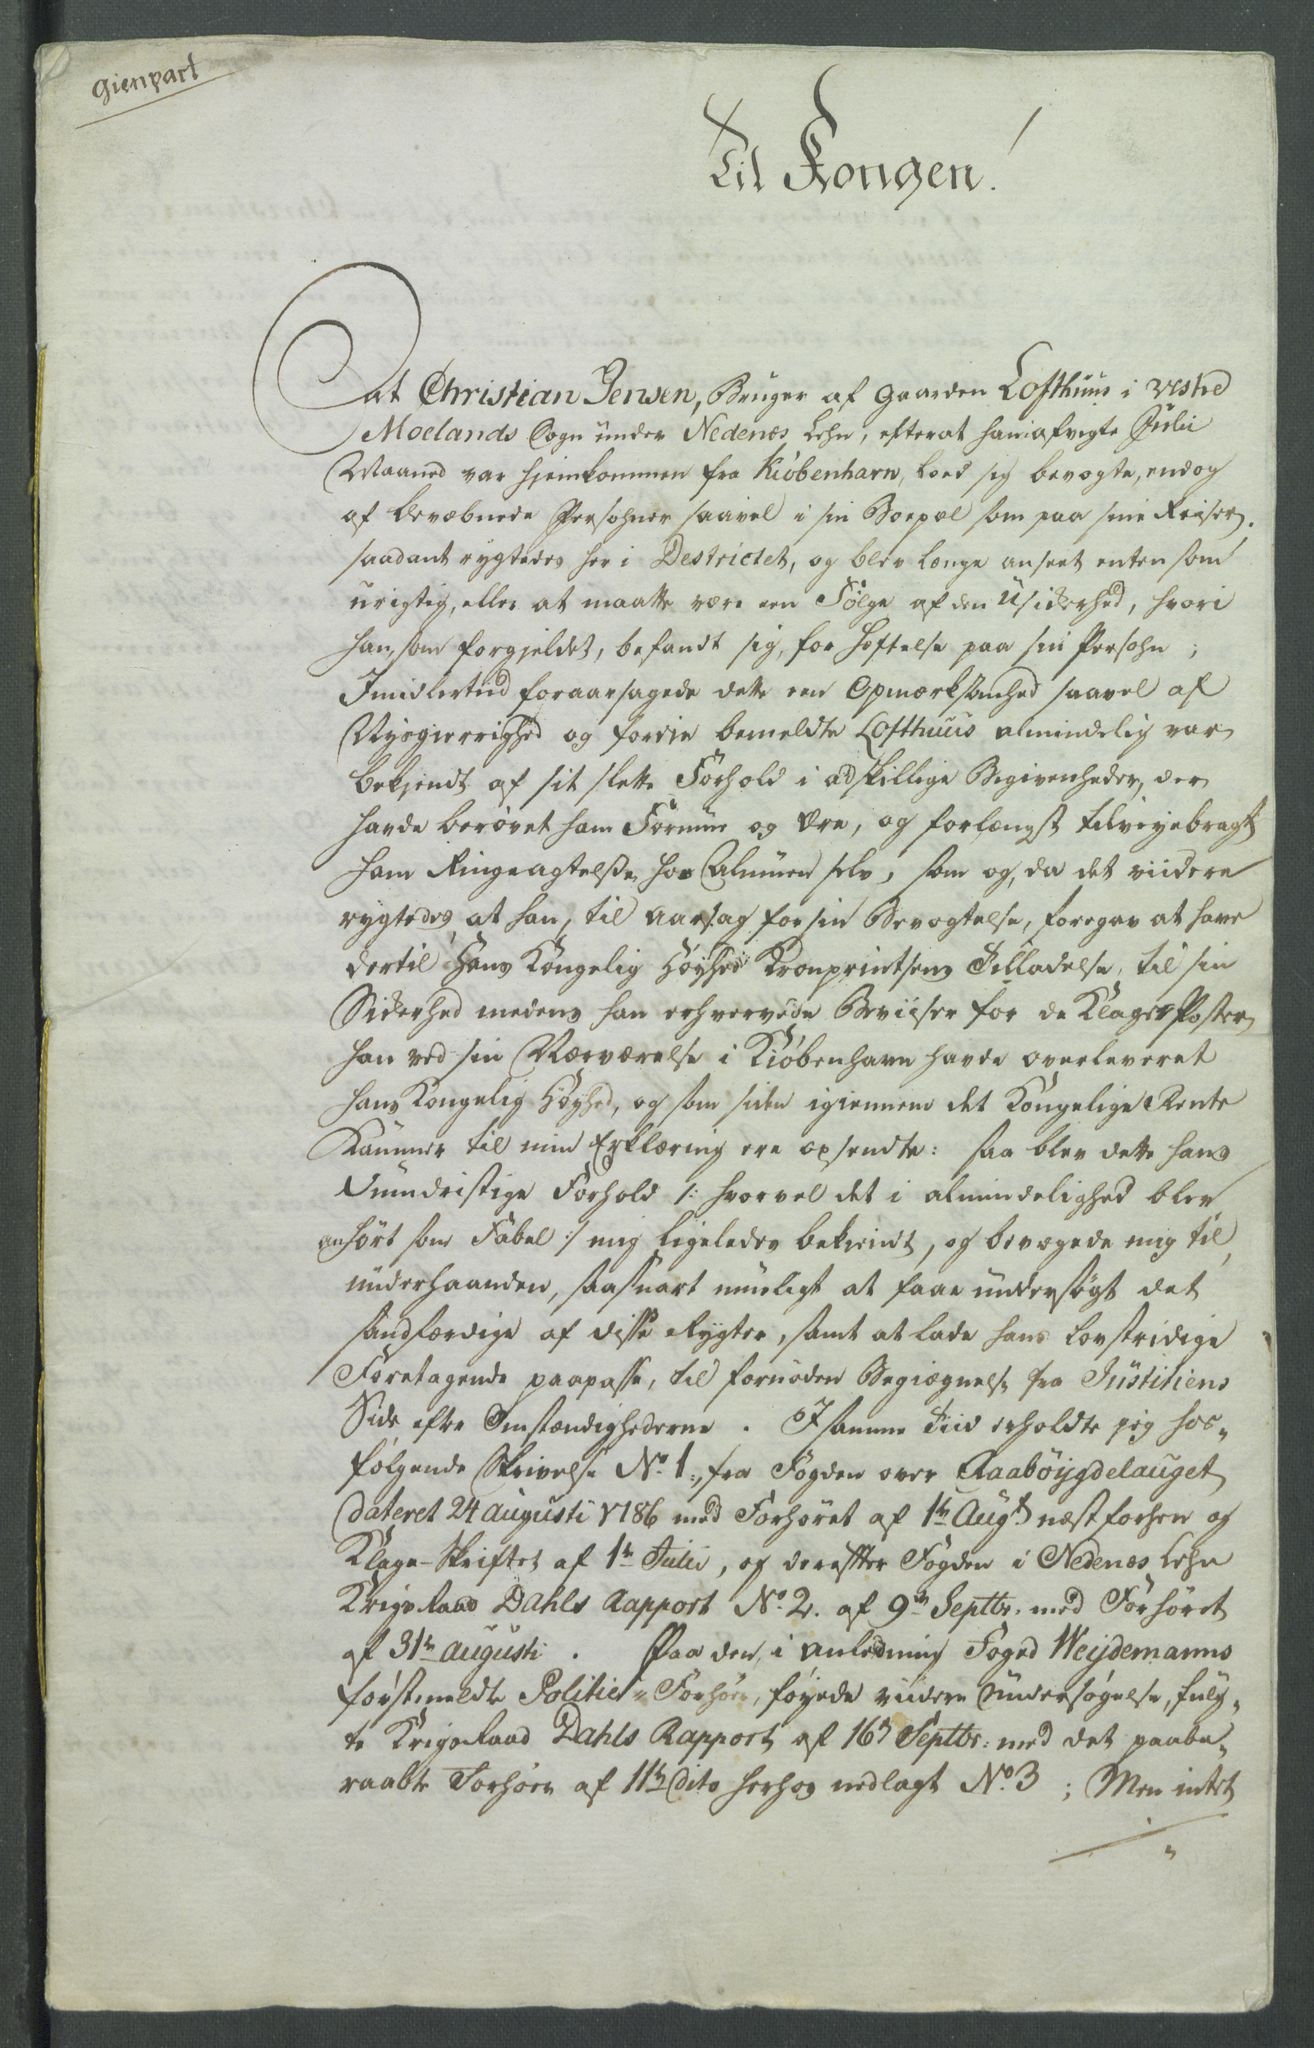 Gienpart
Til Kongen!
At Christian Jensen, Bruger af Gaarden Lofthuus i Vestre
Moelands Sogn under Nedenes Lehn, efterat han i afvigte Julii
Maaned var hjemkommen fra Kiöbenhavn, loed sig bevogte, endog
af bevæbnede Persohner saavel i sin Boepæl som paa sine Reiser.
saadant rygtedes her i Destrictet, og blev længe anseet enten som
urigtig, eller at maatte være een Fölge af den Usikerhed, hvori
han, som forgjeldet, befandt sig, for Heftelse paa sin Persohn;
Imidlertiid foraarsagede dette een Opmærksomhed saavel af
Nysgierrighed og fordie bemeldte Lofthuus almindelig var
bekjendt af sit slette Forhold i adskillige Begivenheder, der
havde berövet ham Formue og Ære, og forlængst tilveyebragt
ham Ringeagtelse hos Almuen selv, som og, da det viidere
rygtedes at han, til Aarsag for sin Bevogtelse, foregav at have
dertil Hans Kongelig Höyhed Kronprintsens Tilladelse, til sin
Sikerhed medens han erhvervede Beviiser for de Klage Poster,
han ved sin Nærværelse i Kiöbenhavn havde overleveret
hans Kongelig Höyhed, og som siden igiennem det Kongelige Rente
Kammer til min Erklæring ere opsendte: saa blev dette hans
Dumdristige Forhold /: hvorvel det i almindelighed blev
anhört som Fabel :/ mig ligeledes bekiendt, og bevægede mig til,
underhaanden, saasnart mueligt at faae undersögt det
sandfærdige af disse Rygter, samt at lade hans lovstridige
Foretagende paapasse, til fornöden Begiægnelse fra Justitiens
Side efter Omstændighederne. I samme Tiid erholdte jeg hos-
fölgende Skrivelse No. 1., fra Fogden over Raaböygdelauget
dateret 24 Augusti 1786 med Forhöret af 1te Augt næstforhen og
Klage-Skriftet af 1te Julii, og derefter Fogden i Nedenes Lehn
Krigsraad Dahls Rapport No. 2. af 9de Septbr: med Forhöret
af 31te Augusti. Paa den, i anledning Foged Weydemanns
förstmeldte Politie-Forhör, föyede viidere Undersögelse, fulg-
te Krigsraad Dahls Rapport af 16de Septbr: med det paabe-
raabte Forhör af 11te dito herhos nedlagt No. 3; Men intet